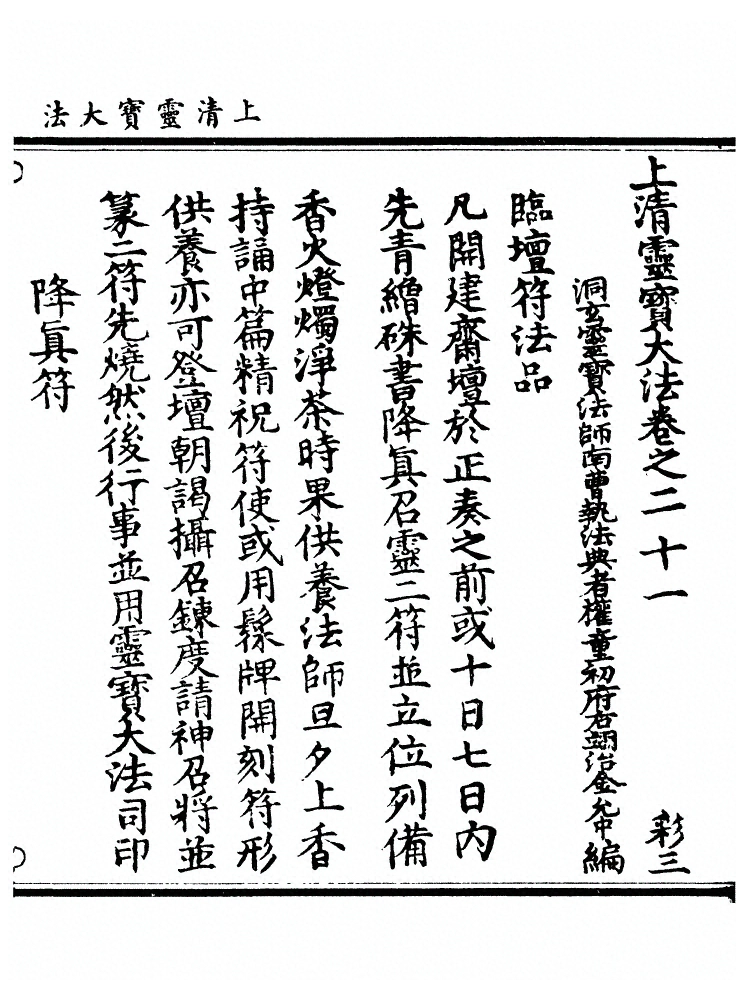 上清靈寶大法
上清靈寶大法卷之二十一　彩三
洞玄靈寶法師南曹執法典者權童初府右翊治金允中編
臨壇符法品
凡開建齋壇於正奏之前或十日七日內
先青繒硃書降眞召靈二符並立位列備
香火燈燭淨茶時果供養法師旦夕上香
持誦中篇精祝符使或用䰍牌開刻符形
供養亦可登壇朝謁攝召鍊度請神召將並
篆二符先燒然後行事並用靈寶大法司印
降眞符